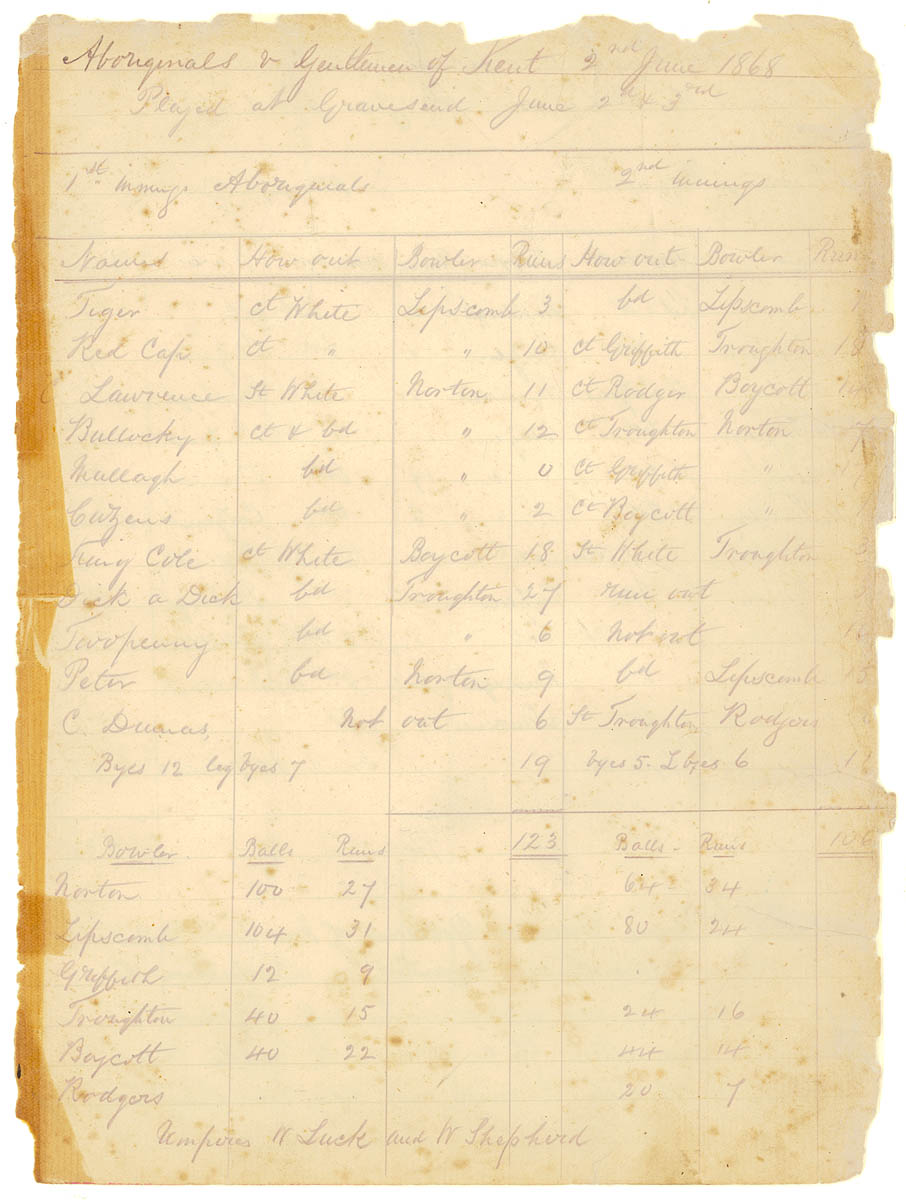 Aboriginals v Gentlemen of Kent 2nd June 1868
Played at Gravesend June 2nd & 3rd
1st Innings Aboriginals 2nd Innings
Names How out Bowler Runs How out Bowler Run
Tiger ct White Lipscomb 3 bd Lipscomb
Red Cap ct " " 10 ct Griffith Troughton
Lawrence St White Norton 11 ct Rodger Boycott
Bullocky ct & bd " 12 ct Troughton Norton
Mullagh bd " 0 ct Griffith "
Cuzens bd " 2 ct Boycott "
King Cole ct White Boycott 18 St White Troughton
Dick a Dick bd Troughton 27 run out
Twopenny bd " 6 Not out
Peter bd Norton 9 bd Lipscomb
C. Dumas, Not out 6 St Troughton Rodgers
Byes 12 leg byes 7 19 byes 5. L byes 6
123 106
Bowler Balls Runs Balls Runs
Norton 100 27 64 34
Lipscomb 104 31 80 24
Griffith 12 9
Troughton 40 15 24 16
Boycott 40 22 44 14
Rodgers 20 7
Umpires W Luck and W Shepherd